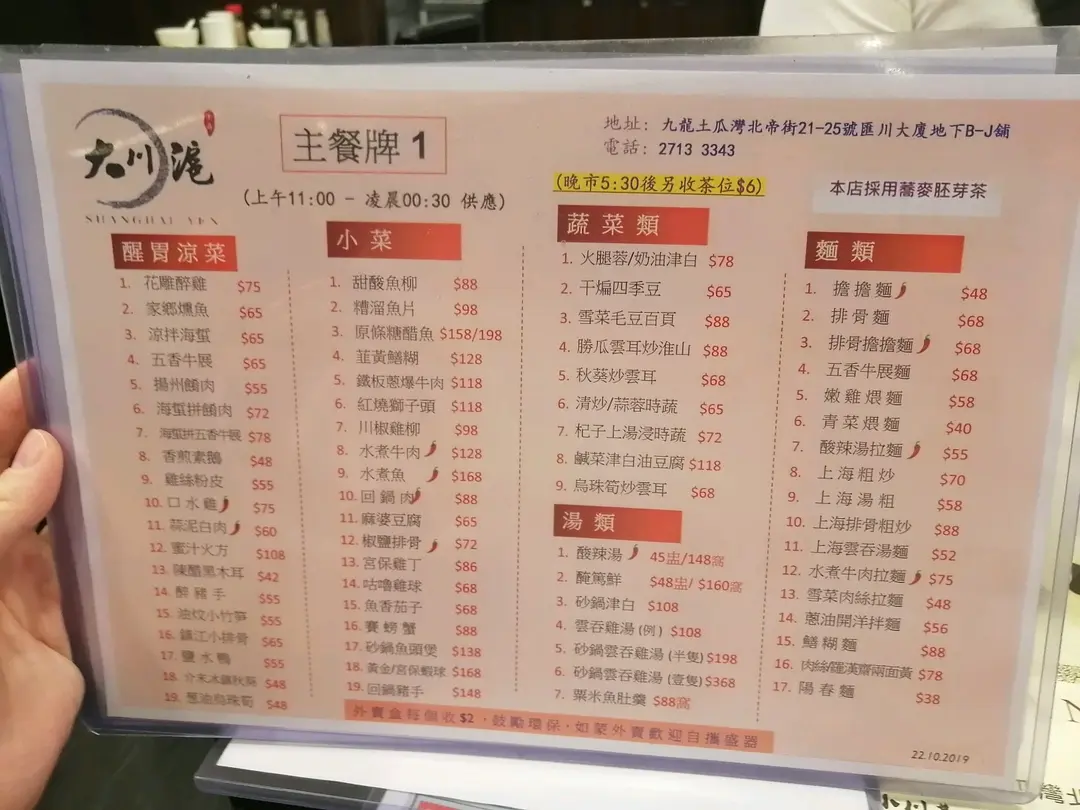 大川滬
SHANGHAI YEN
主餐牌 1
(上午11:00 - 凌晨00:30 供應)
地址: 九龍土瓜灣北帝街21-25號匯川大廈地下B-J舖
電話: 2713 3343
(晚市5:30後另收茶位$6)
本店採用蕎麥胚芽茶
醒胃涼菜
1. 花雕醉雞 $75
2. 家鄉燻魚 $65
3. 涼拌海蜇 $65
4. 五香牛展 $65
5. 揚州餚肉 $55
6. 海蜇拼餚肉 $72
7. 海蜇拼五香牛展 $78
8. 香煎素鵝 $48
9. 雞絲粉皮 $55
10. 口水雞 $75
11. 蒜泥白肉 $60
12. 蜜汁火方 $108
13. 陳醋黑木耳 $42
14. 醉豬手 $55
15. 油炆小竹筍 $55
16. 鎮江小排骨 $65
17. 鹽水鴨 $55
18. 介末冰鎮秋葵 $48
19. 蔥油烏珠筍 $48
小菜
1. 甜酸魚柳 $88
2. 糟溜魚片 $98
3. 原條糖醋魚 $158/198
4. 韮黃鱔糊 $128
5. 鐵板蔥爆牛肉 $118
6. 紅燒獅子頭 $118
7. 川椒雞柳 $98
8. 水煮牛肉 $128
9. 水煮魚 $168
10. 回鍋肉 $88
11. 麻婆豆腐 $65
12. 椒鹽排骨 $72
13. 宮保雞丁 $86
14. 咕嚕雞球 $68
15. 魚香茄子 $68
16. 賽螃蟹 $88
17. 砂鍋魚頭煲 $138
18. 黃金/宮保蝦球 $168
19. 回鍋豬手 $148
蔬菜類
1. 火腿蓉/奶油津白 $78
2. 干煸四季豆 $65
3. 雪菜毛豆百頁 $88
4. 勝瓜雲耳炒淮山 $88
5. 秋葵炒雲耳 $68
6. 清炒/蒜蓉時蔬 $65
7. 杞子上湯浸時蔬 $72
8. 鹹菜津白油豆腐 $118
9. 烏珠筍炒雲耳 $68
湯類
1. 酸辣湯 45盅/148窩
2. 醃篤鮮 $48盅/ $160窩
3. 砂鍋津白 $108
4. 雲吞雞湯 (例) $108
5. 砂鍋雲吞雞湯 (半隻) $198
6. 砂鍋雲吞雞湯 (壹隻) $368
7. 粟米魚肚羹 $88窩
麵類
1. 擔擔麵 $48
2. 排骨麵 $68
3. 排骨擔擔麵 $68
4. 五香牛展麵 $68
5. 嫩雞煨麵 $58
6. 青菜煨麵 $40
7. 酸辣湯拉麵 $55
8. 上海粗炒 $70
9. 上海湯粗 $58
10. 上海排骨粗炒 $88
11. 上海雲吞湯麵 $52
12. 水煮牛肉拉麵 $75
13. 雪菜肉絲拉麵 $48
14. 蔥油開洋拌麵 $56
15. 鱔糊麵 $88
16. 肉絲/齋兩面黃 $78
17. 陽春麵 $38
外賣盒每個收$2，鼓勵環保，如蒙外賣歡迎自攜盛器
22.10.2019